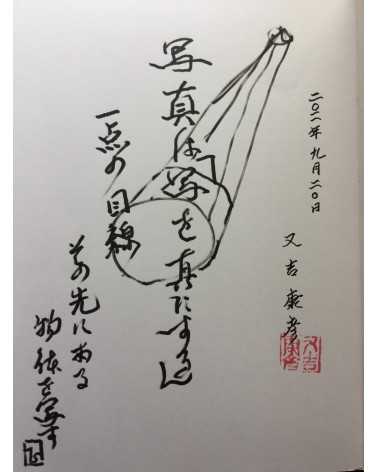 二〇二一年 九月二〇日
又吉 康彦
写真は「写を真にする」
一点の目線
その先にある
物体を写す